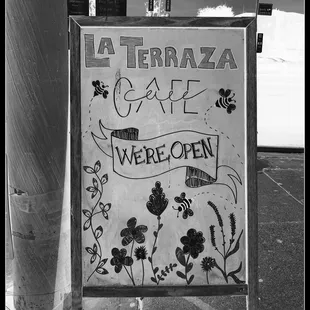 LA TERRAZA
CAFE
Café
WE'RE OPEN